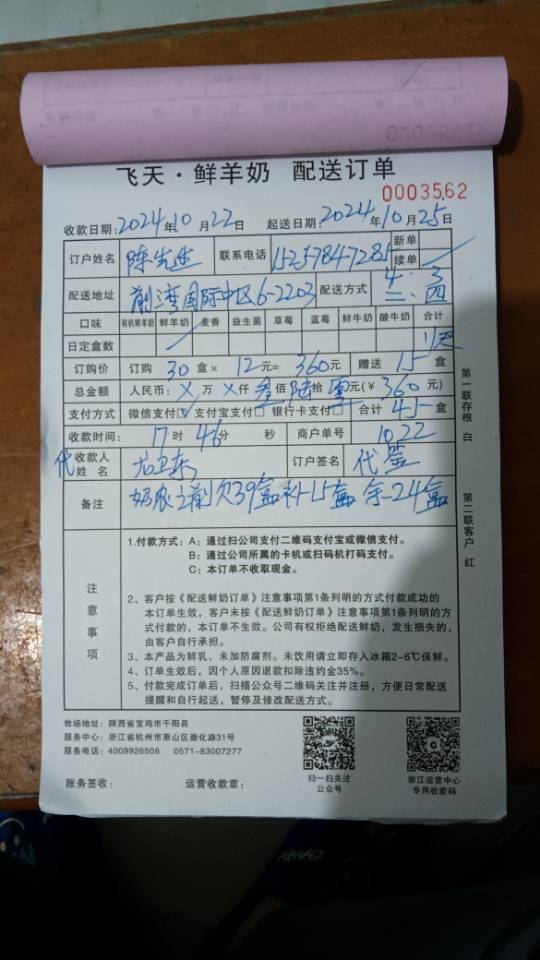 飞天·鲜羊奶 配送订单
0003562
收款日期:2024年10月22日 起送日期:2024年10月25日
订户姓名 陈先生 联系电话 15257847285 新单
续单
配送地址 前湾国际中区6-2203 配送方式 二、四
口味 有机鲜羊奶 鲜羊奶 麦香 益生菌 草莓 蓝莓 鲜牛奶 酸牛奶 合计
日定盒数
订购价 订购 30 盒× 12 元= 360 元 赠送 15 盒
总金额 人民币: ×万 ×仟 叁佰 陆拾 零元(¥ 360 元)
支付方式 微信支付☑ 支付宝支付☐ 银行卡支付☐ 合计 45盒
收款时间: 17时 46分 秒 商户单号 1022
代收款人姓名 订户签名 代签
备注 奶农之前欠39盒补15盒余24盒
第一联存根 白
第二联客户 红
注意事项
1.付款方式:A:通过扫公司支付二维码支付宝或微信支付。
B:通过公司所属的卡机或扫码机打码支付。
C:本订单不收取现金。
2、客户按《配送鲜奶订单》注意事项第1条列明的方式付款成功的
本订单生效,客户未按《配送鲜奶订单》注意事项第1条列明的方
式付款的,本订单不生效。公司有权拒绝配送鲜奶,发生损失的,
由客户自行承担。
3、本产品为鲜乳,未加防腐剂。未饮用请立即存入冰箱2~6℃保鲜。
4、订单生效后,因个人原因退款扣除违约金35%。
5、付款完成订单后,扫描公众号二维码关注并注册,方便日常配送
提醒和自行起送,暂停及修改配送方式。
牧场地址:陕西省宝鸡市千阳县
服务中心:浙江省杭州市萧山区崇化路31号
服务电话:4009926508 0571-83007277
扫一扫关注
公众号
浙江运营中心
专用收款码
账务签收: 运营收款章: